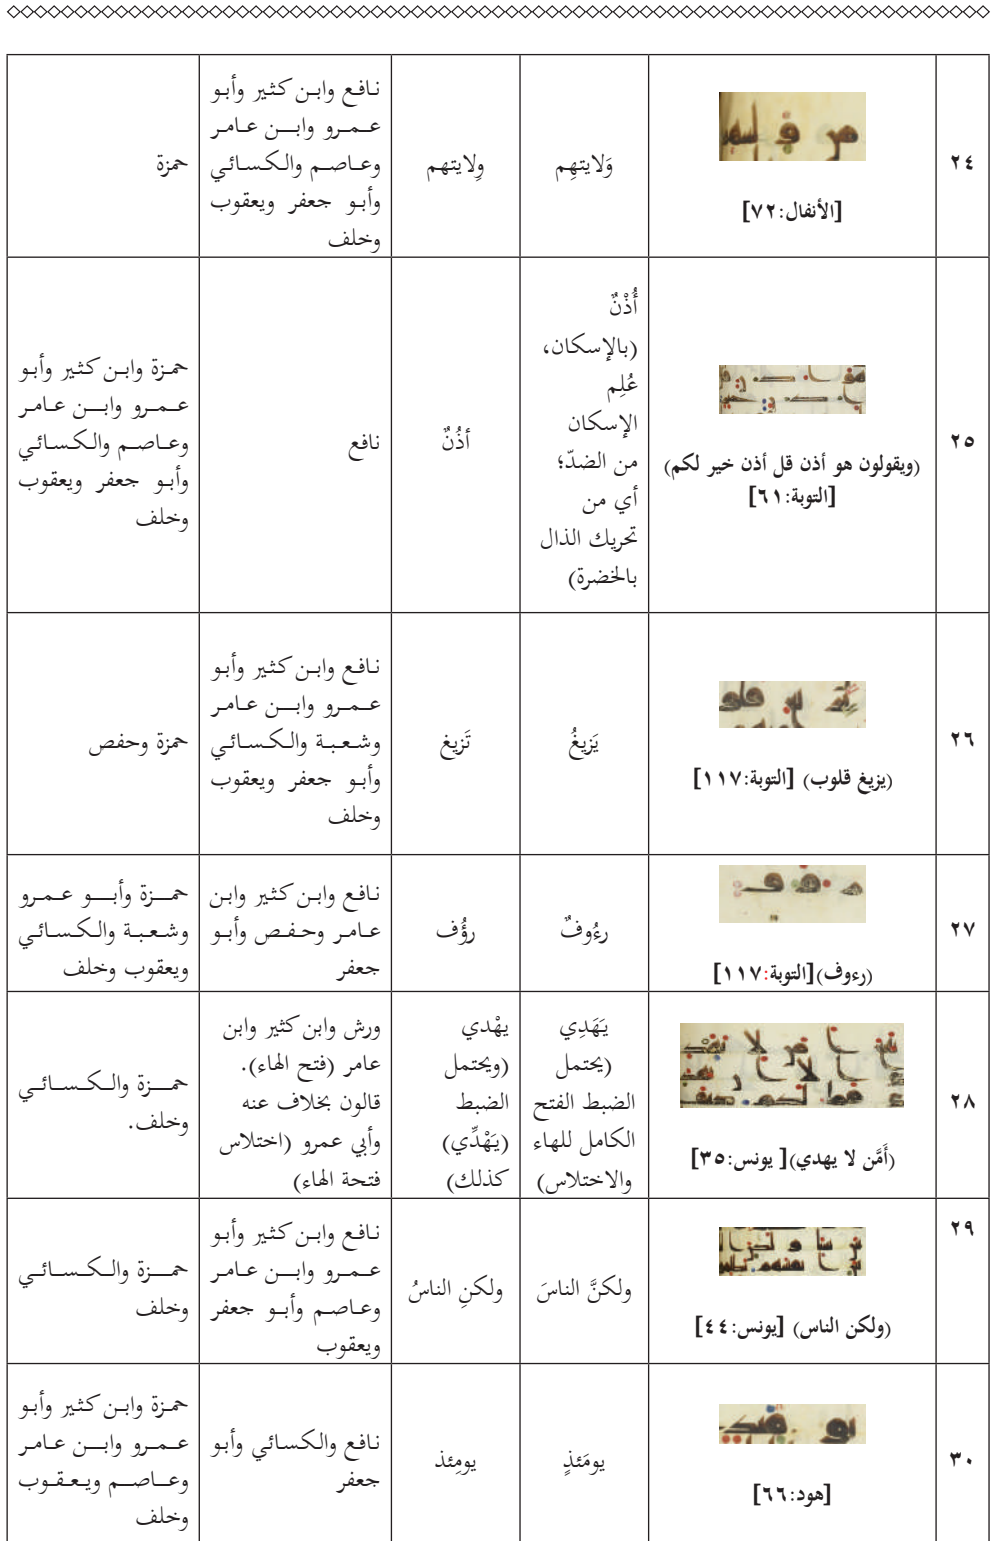 ٢٤
[الأنفال:٧٢]
وَلايتهِم
وِلايتهم
نافع وابن كثير وأبو
عمرو وابن عامر
وعاصم والكسائي
وأبو جعفر ويعقوب
وخلف
حمزة
٢٥
(ويقولون هو أذن قل أذن خير لكم)
[التوبة:٦١]
أُذْنٌ
(بالإسكان،
عُلِم
الإسكان
من الضدّ؛
أي من
تحريك الذال
بالخضرة)
أذُنٌ
نافع
حمزة وابن كثير وأبو
عمرو وابن عامر
وعاصم والكسائي
وأبو جعفر ويعقوب
وخلف
٢٦
(يزيغ قلوب) [التوبة:١١٧]
يَزيغُ
تَزيغ
نافع وابن كثير وأبو
عمرو وابن عامر
وشعبة والكسائي
وأبو جعفر ويعقوب
وخلف
حمزة وحفص
٢٧
(رءوف)[التوبة:١١٧]
رءُوفٌ
رؤُف
نافع وابن كثير وابن
عامر وحفص وأبو
جعفر
حمزة وأبو عمرو
وشعبة والكسائي
ويعقوب وخلف
٢٨
(أَمَّن لا يهدي)[ يونس:٣٥]
يَهَدِي
(يحتمل
الضبط الفتح
الكامل للهاء
والاختلاس)
يهْدي
(ويحتمل
الضبط
(يَهْدِّي)
كذلك)
ورش وابن كثير وابن
عامر (فتح الهاء).
قالون بخلاف عنه
وأبي عمرو (اختلاس
فتحة الهاء)
حمزة والكسائي
وخلف.
٢٩
(ولكن الناس) [يونس:٤٤]
ولكنَّ الناسَ
ولكنِ الناسُ
نافع وابن كثير وأبو
عمرو وابن عامر
وعاصم وأبو جعفر
ويعقوب
حمزة والكسائي
وخلف
٣٠
[هود:٦٦]
يومَئذٍ
يومِئذ
نافع والكسائي وأبو
جعفر
حمزة وابن كثير وأبو
عمرو وابن عامر
وعاصم ويعقوب
وخلف